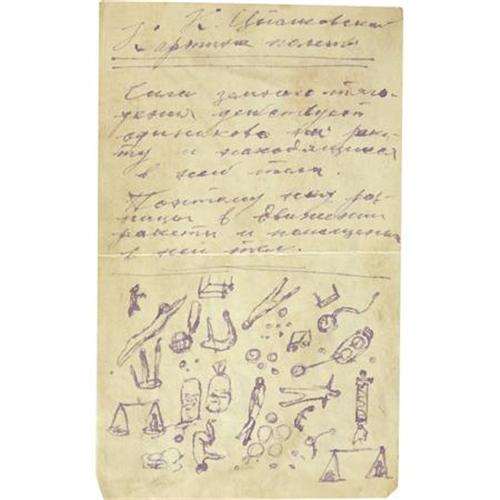 К. Циолковский
Картина полета
Сила земного тяго-
тения действует
одинаково на раке-
ту и находящиеся
в ней тела.
Поэтому нет раз-
ницы в движении
ракеты и помещенных
в ней тел.